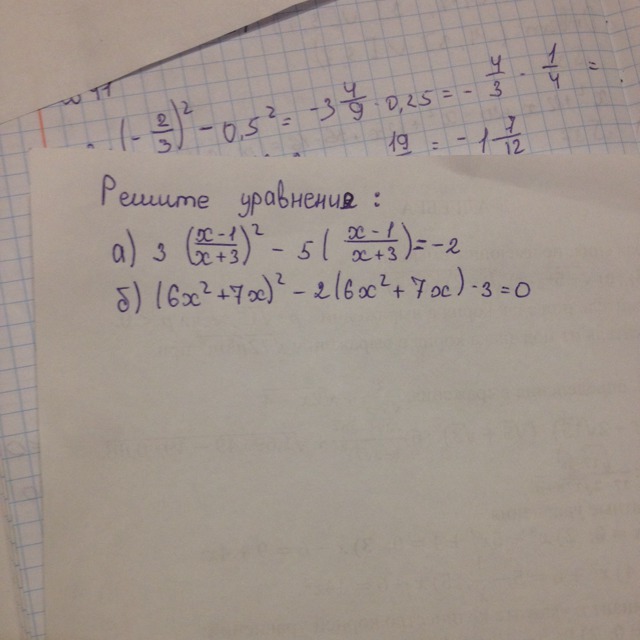 (-2/3)² - 0,5² = -3 4/9 · 0,25 = - 4/3 · 1/4 =
19 = -1 7/12
Решите уравнение :
а) 3 (x-1/x+3)² - 5 ( x-1/x+3)=-2
б) (6x²+7x)² - 2(6x²+7x) · 3 = 0